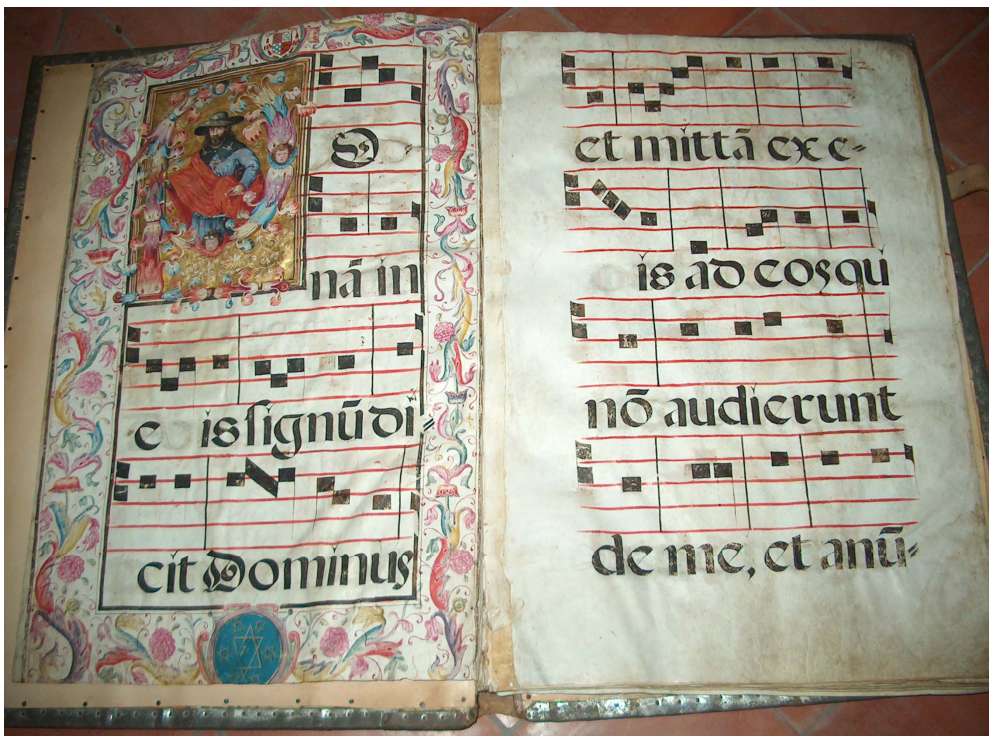 O
nã in
e is ſignũ di=
cit Dominus
et mittã ex e=
is ad eos qui
nõ audierunt
de me, et anũ=